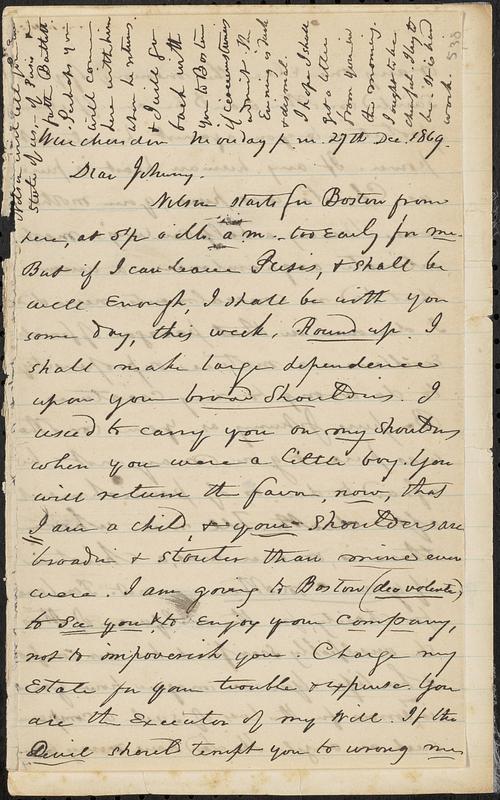 Winchendon Monday p m. 27th Dec. 1869.
Dear Johnny.
Nelson starts for Boston from
here, at 5 o'clk. a.m.. too Early for me.
But if I can leave Persis, & shall be
well Enough, I shall be with you
some day, this week. Round up. I
shall make large dependence
upon your broad shoulders. I
used to carry you on my shoulders
when you were a little boy. You
will return the favor, now, that
I am a child, & your shoulders are
broader & stouter than mine ever
were. I am going to Boston (deo volente)
to see you & to Enjoy your Company,
not to impoverish you. Charge my
Estate for your trouble & expense. You
are the Executor of my Will. If the
Devil should tempt you to wrong me,
Nelson will tell you
State of us, of Persis &
will come
here with him
when he returns
& I will go
back with
you to Boston
if circumstances
admit. The
Evening is dark
& dismal.
I hope I shall
get a letter
from you in
the morning.
I ought to be
cheerful. I try to
be. It is hard
work.
530